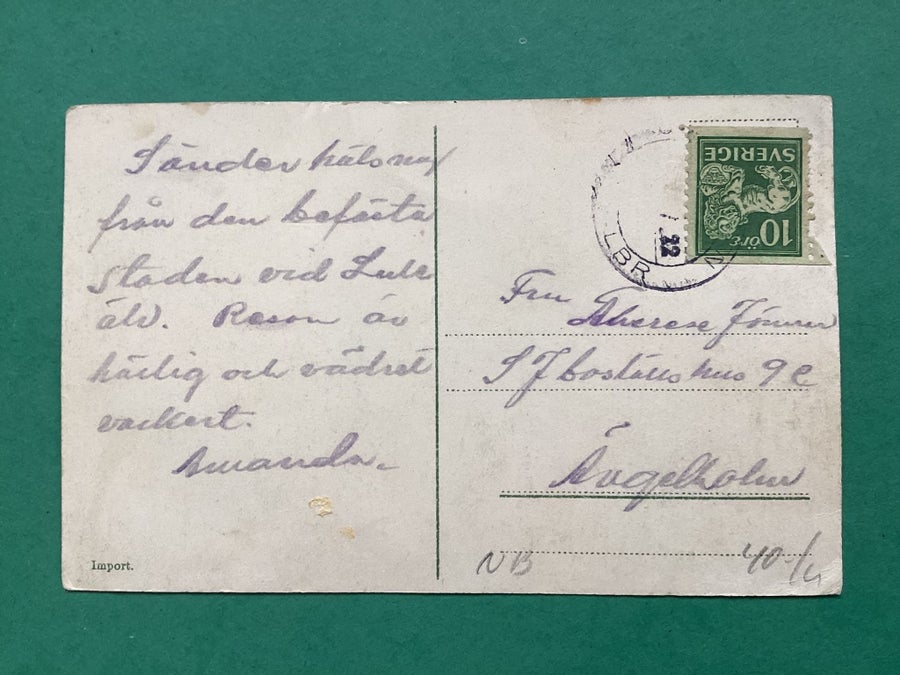 Sänder hälsning
från den befästa
staden vid Lule
älv. Resan är
härlig och vädret
vackert.
Amanda.
Import.
SVERIGE
10 ÖRE
22
LBR
Fru Therese
S J boställshus 9 C
Ängelholm
NB
40-/